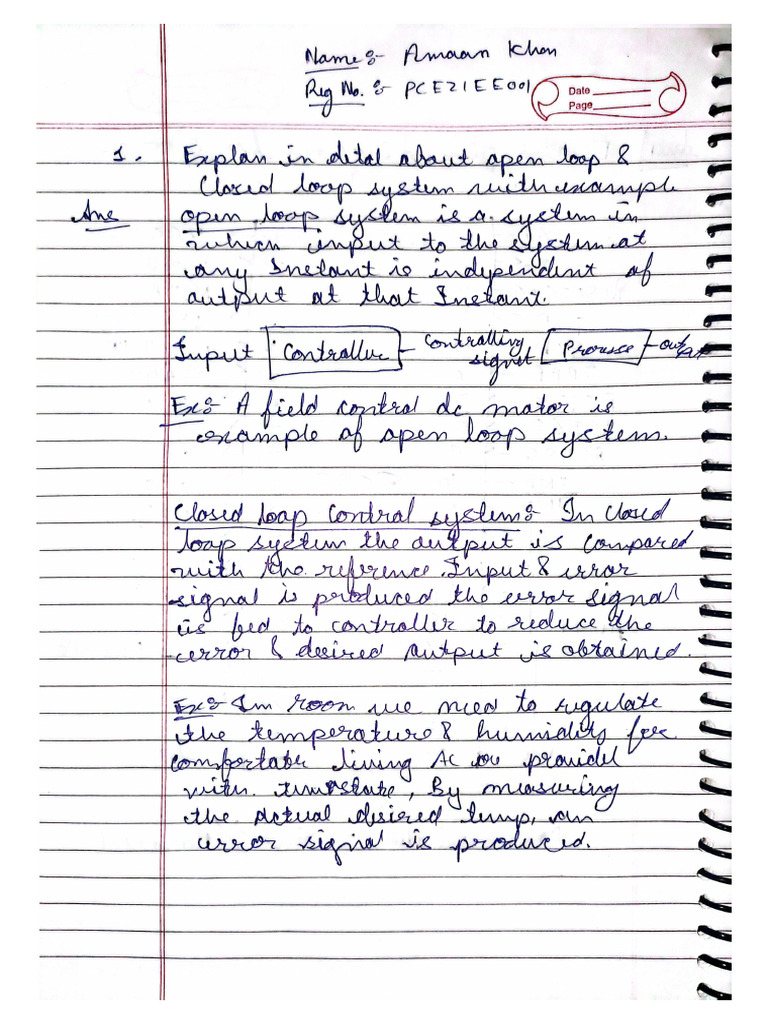 Name:- Amaan Khan
Reg No. :- PCE21EE001
Date
Page
1. Explan in detal about open loop &
Closed loop system with example
Ans open loop system is a system in
which input to the system at
any Instant is independent of
output at that Instant.
Input Controller controlling signal Process output
Ex:- A field control dc motor is
example of open loop system.
Closed loop control system:- In Closed
loop system the output is compared
with the reference Input & error
signal is produced the error signal
is fed to controller to reduce the
error & desired output is obtained.
Ex:- In room we need to regulate
the temperature & humidity for
comfortable living AC are provided
with , By measuring
the actual desired temp, an
error signal is produced.